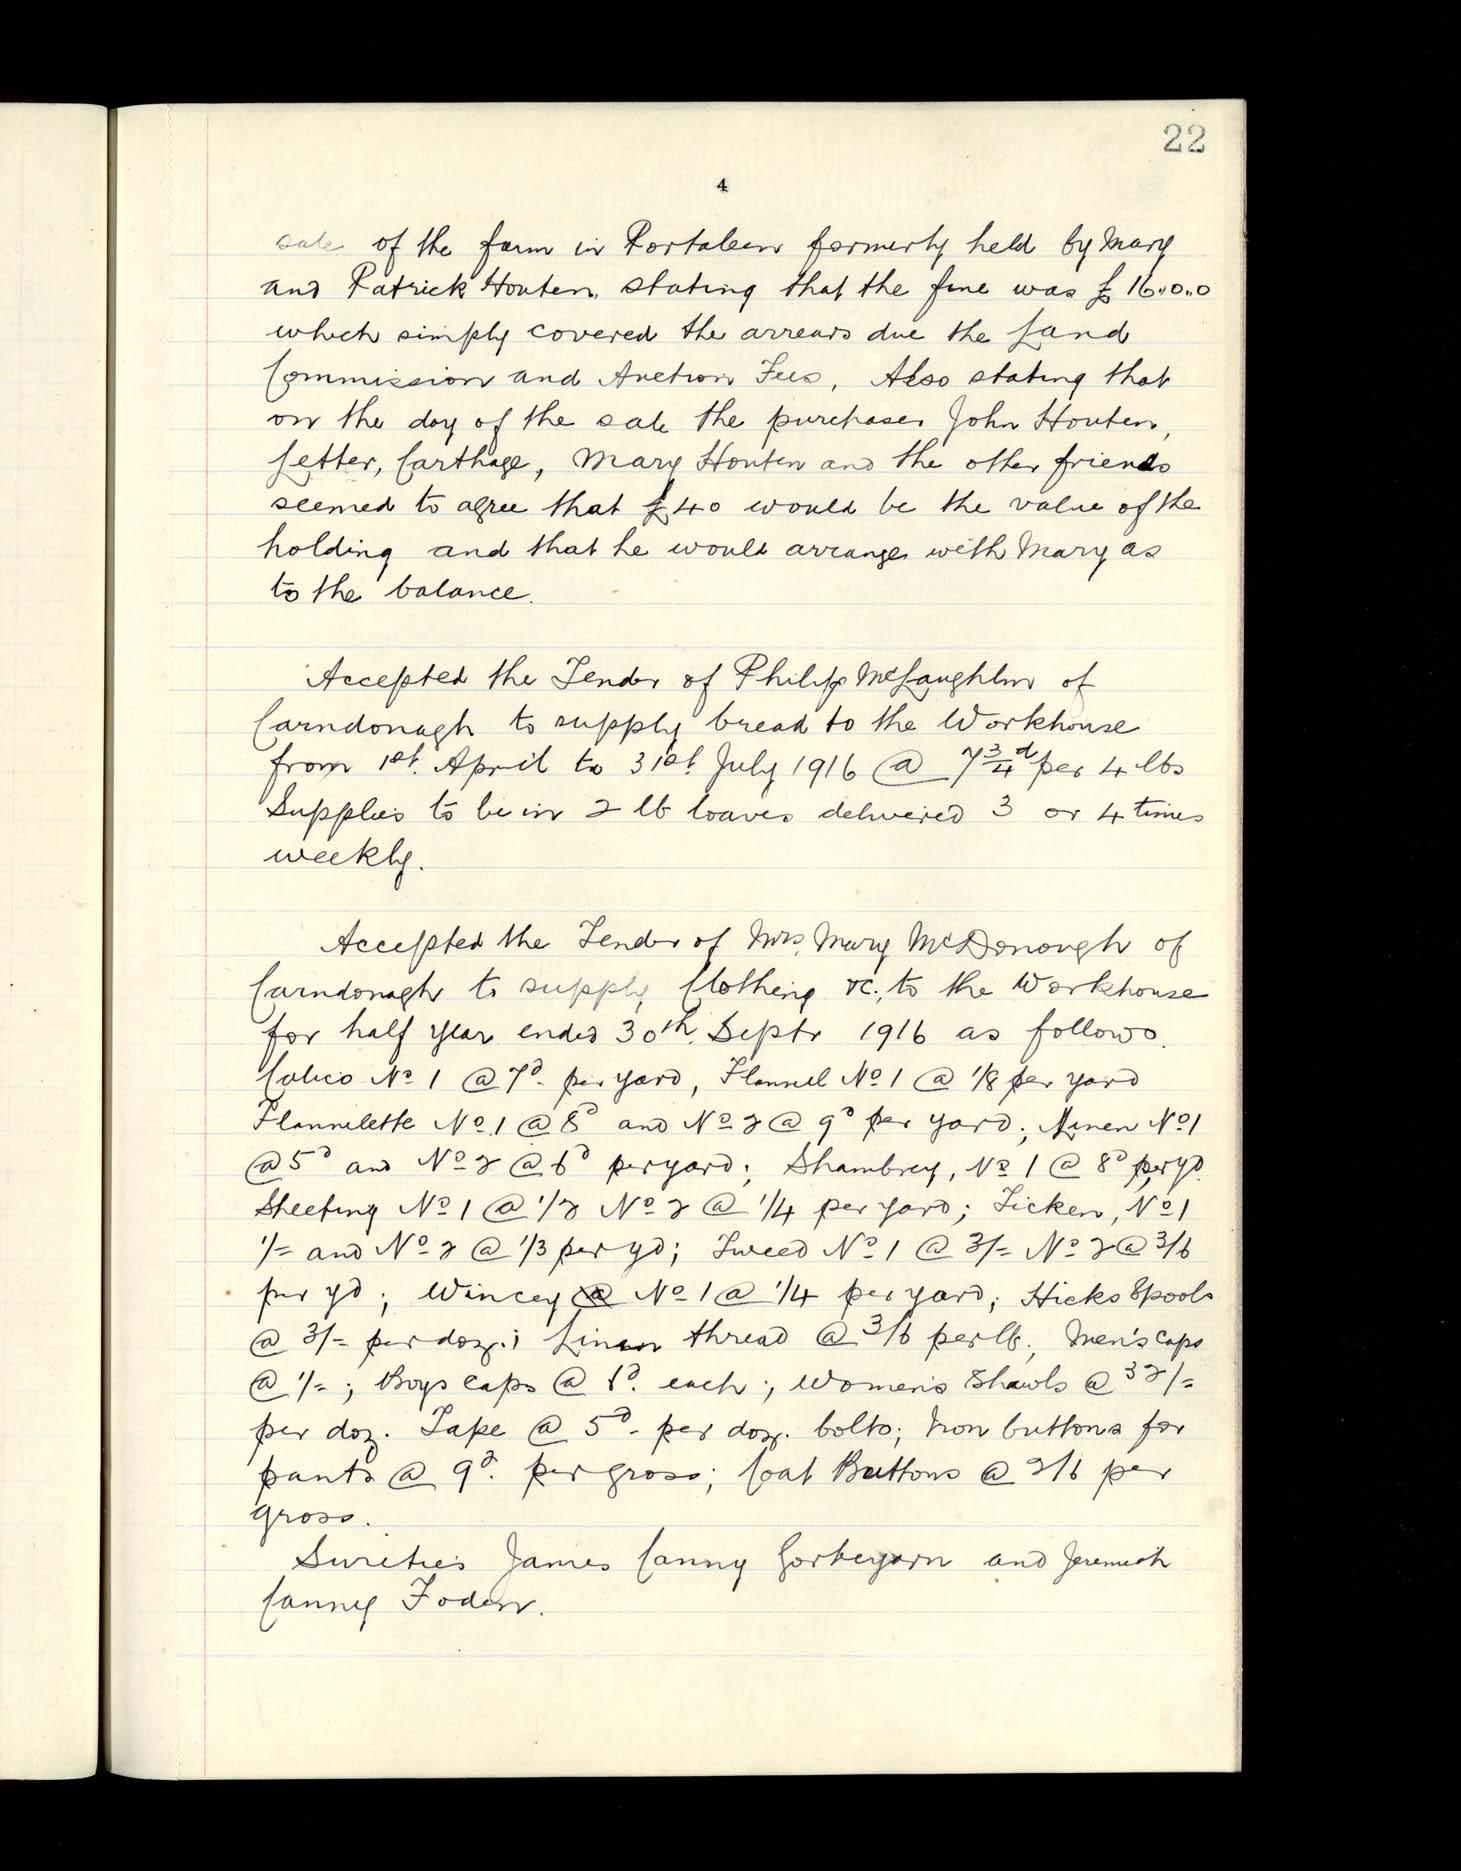 22
4
sale of the farm in Portaleen formerly held by Mary
and Patrick Houten, stating that the fine was £16..0..0
which simply covered the arrears due the Land
Commission and Auction Fees, Also stating that
on the day of the sale the purchaser John Houten,
Letter, Carthage, Mary Houten and the other friends
seemed to agree that £40 would be the value of the
holding and that he would arrange with Mary as
to the balance.
Accepted the Tender of Philip McLaughlin of
Carndonagh to supply bread to the Workhouse
from 1st. April to 31st July 1916 @ 7¾d per 4 lbs
Supplies to be in 2 lb loaves delivered 3 or 4 times
weekly.
Accepted the Tender of Mrs. Mary McDonough of
Carndonagh to supply Clothing &c., to the Workhouse
for half year ended 30th. Septr 1916 as follows.
Calico No 1 @ 7d. per yard, Flannel No 1 @ 1/8 per yard
Flannelette No. 1 @ 8d and No 2 @ 9d per yard; Linen No 1
@ 5d and No 2 @ 6d per yard; Shambrey, No 1 @ 8d per yd.
Sheeting No 1 @ 1/2 No 2 @ 1/4 per yard; Ticken, No 1
1/= and No 2 @ 1/3 per yd; Tweed No 1 @ 3/= No 2 @ 3/6
per yd; Wincey @ No 1 @ 1/4 per yard; Hicks Spools
@ 3/= per doz.; Linen thread @ 3/6 per lb.; Men's caps
@ 1/=; Boys caps @ d. each; Women's Shawls @ 32/=
per doz. Tape @ 5d. per doz. bolts; Iron buttons for
pants @ 9d. per gross; Coat Buttons @ 2/6 per
gross.
Sureties James Canny and Jeremiah
Canney Foden.